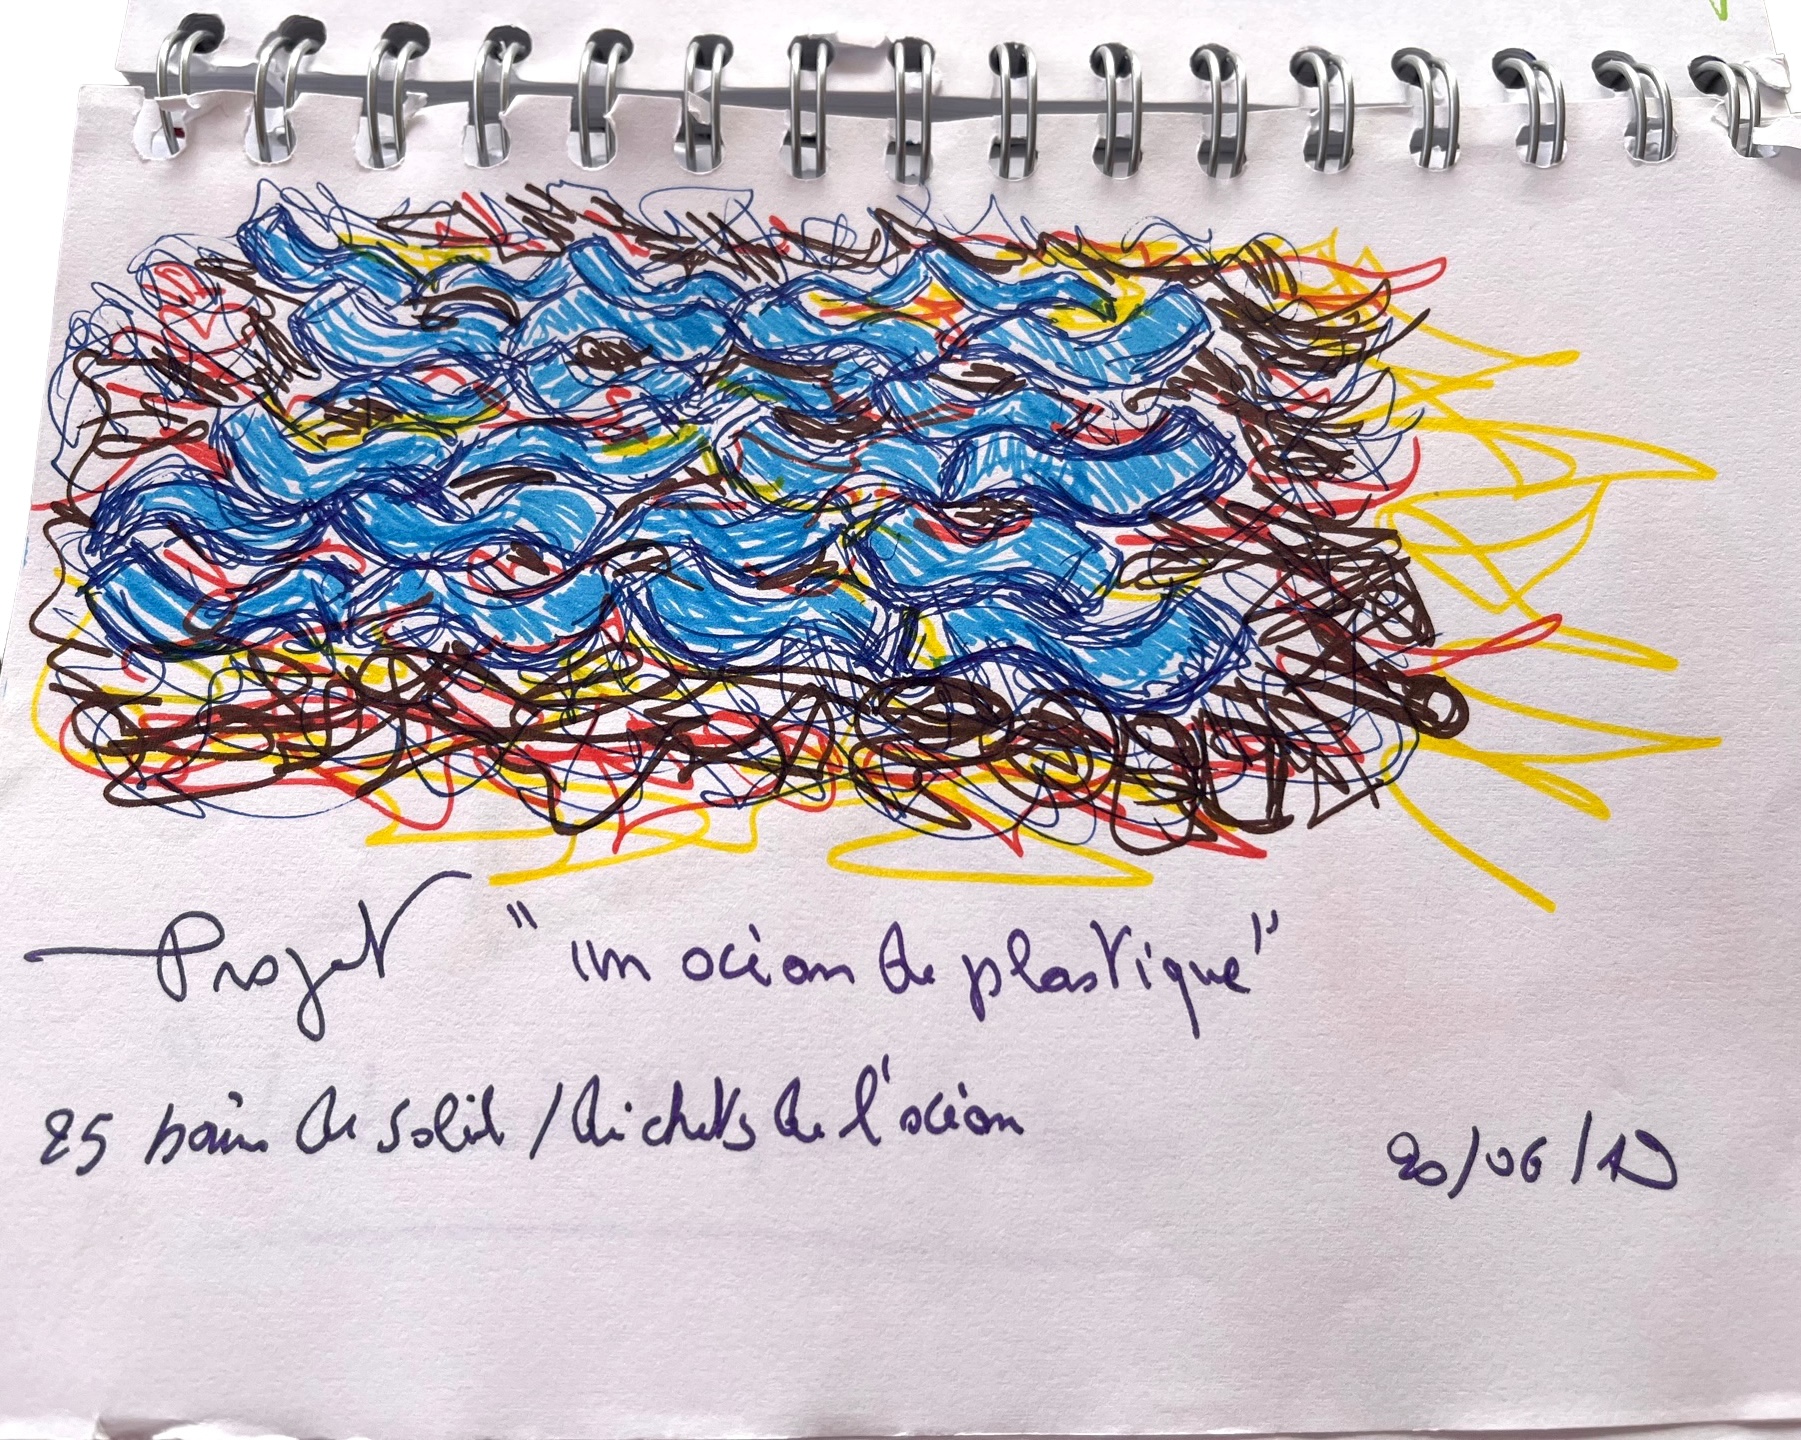 Projet "un océan de plastique"
25 bains de soleil / déchets de l'océan
20/06/19